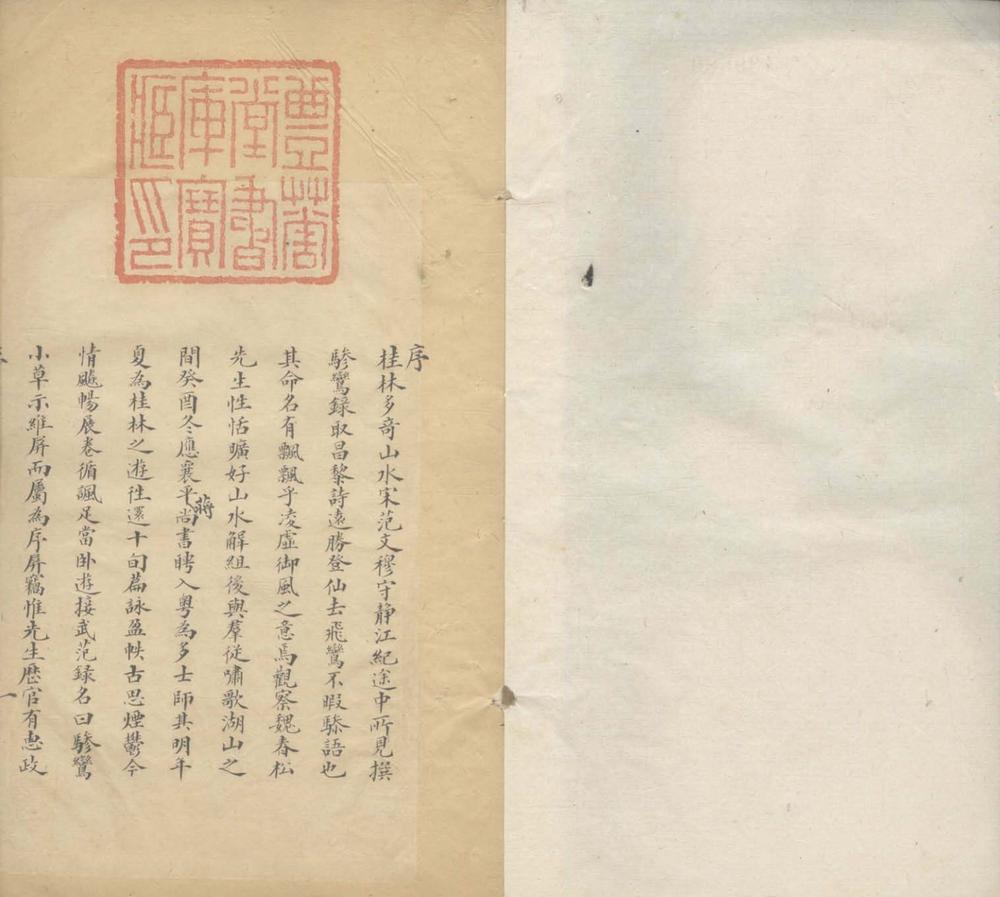 豊華堂書庫寶藏印
序
桂林多奇山水宋范文穆守静江紀途中所見撰
驂鸞録取昌黎詩遠勝登仙去飛鸞不暇驂語也
其命名有飄飄乎凌虛御風之意焉觀察魏春松
先生性恬曠好山水解組後與羣從嘯歌湖山之
間癸酉冬應襄平蔣尚書聘入粤為多士師其明年
夏為桂林之遊往還十旬篇詠盈帙古思煙鬱今
情飈暢展卷循諷足當卧遊接武范録名曰驂鸞
小草示維屏而屬為序屏竊惟先生歷官有惠政
一